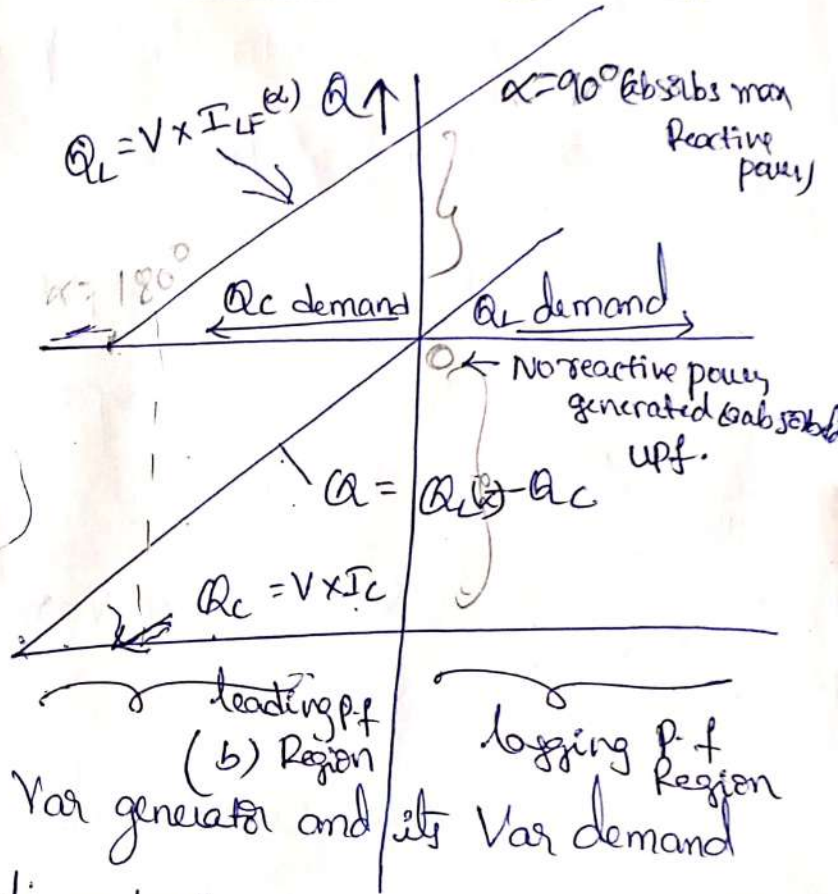 Q_L = V × I_LF(α)
Q ↑
α=90° (absorbs max
Reactive
power)
α= 180°
Qc demand
Q_L demand
O ← No reactive power
generated (or) absorbed
upf.
Q = Q_L(α)-Qc
Qc = V×Ic
leading p.f
(b) Region
lagging p.f
Region
Var generator and its Var demand